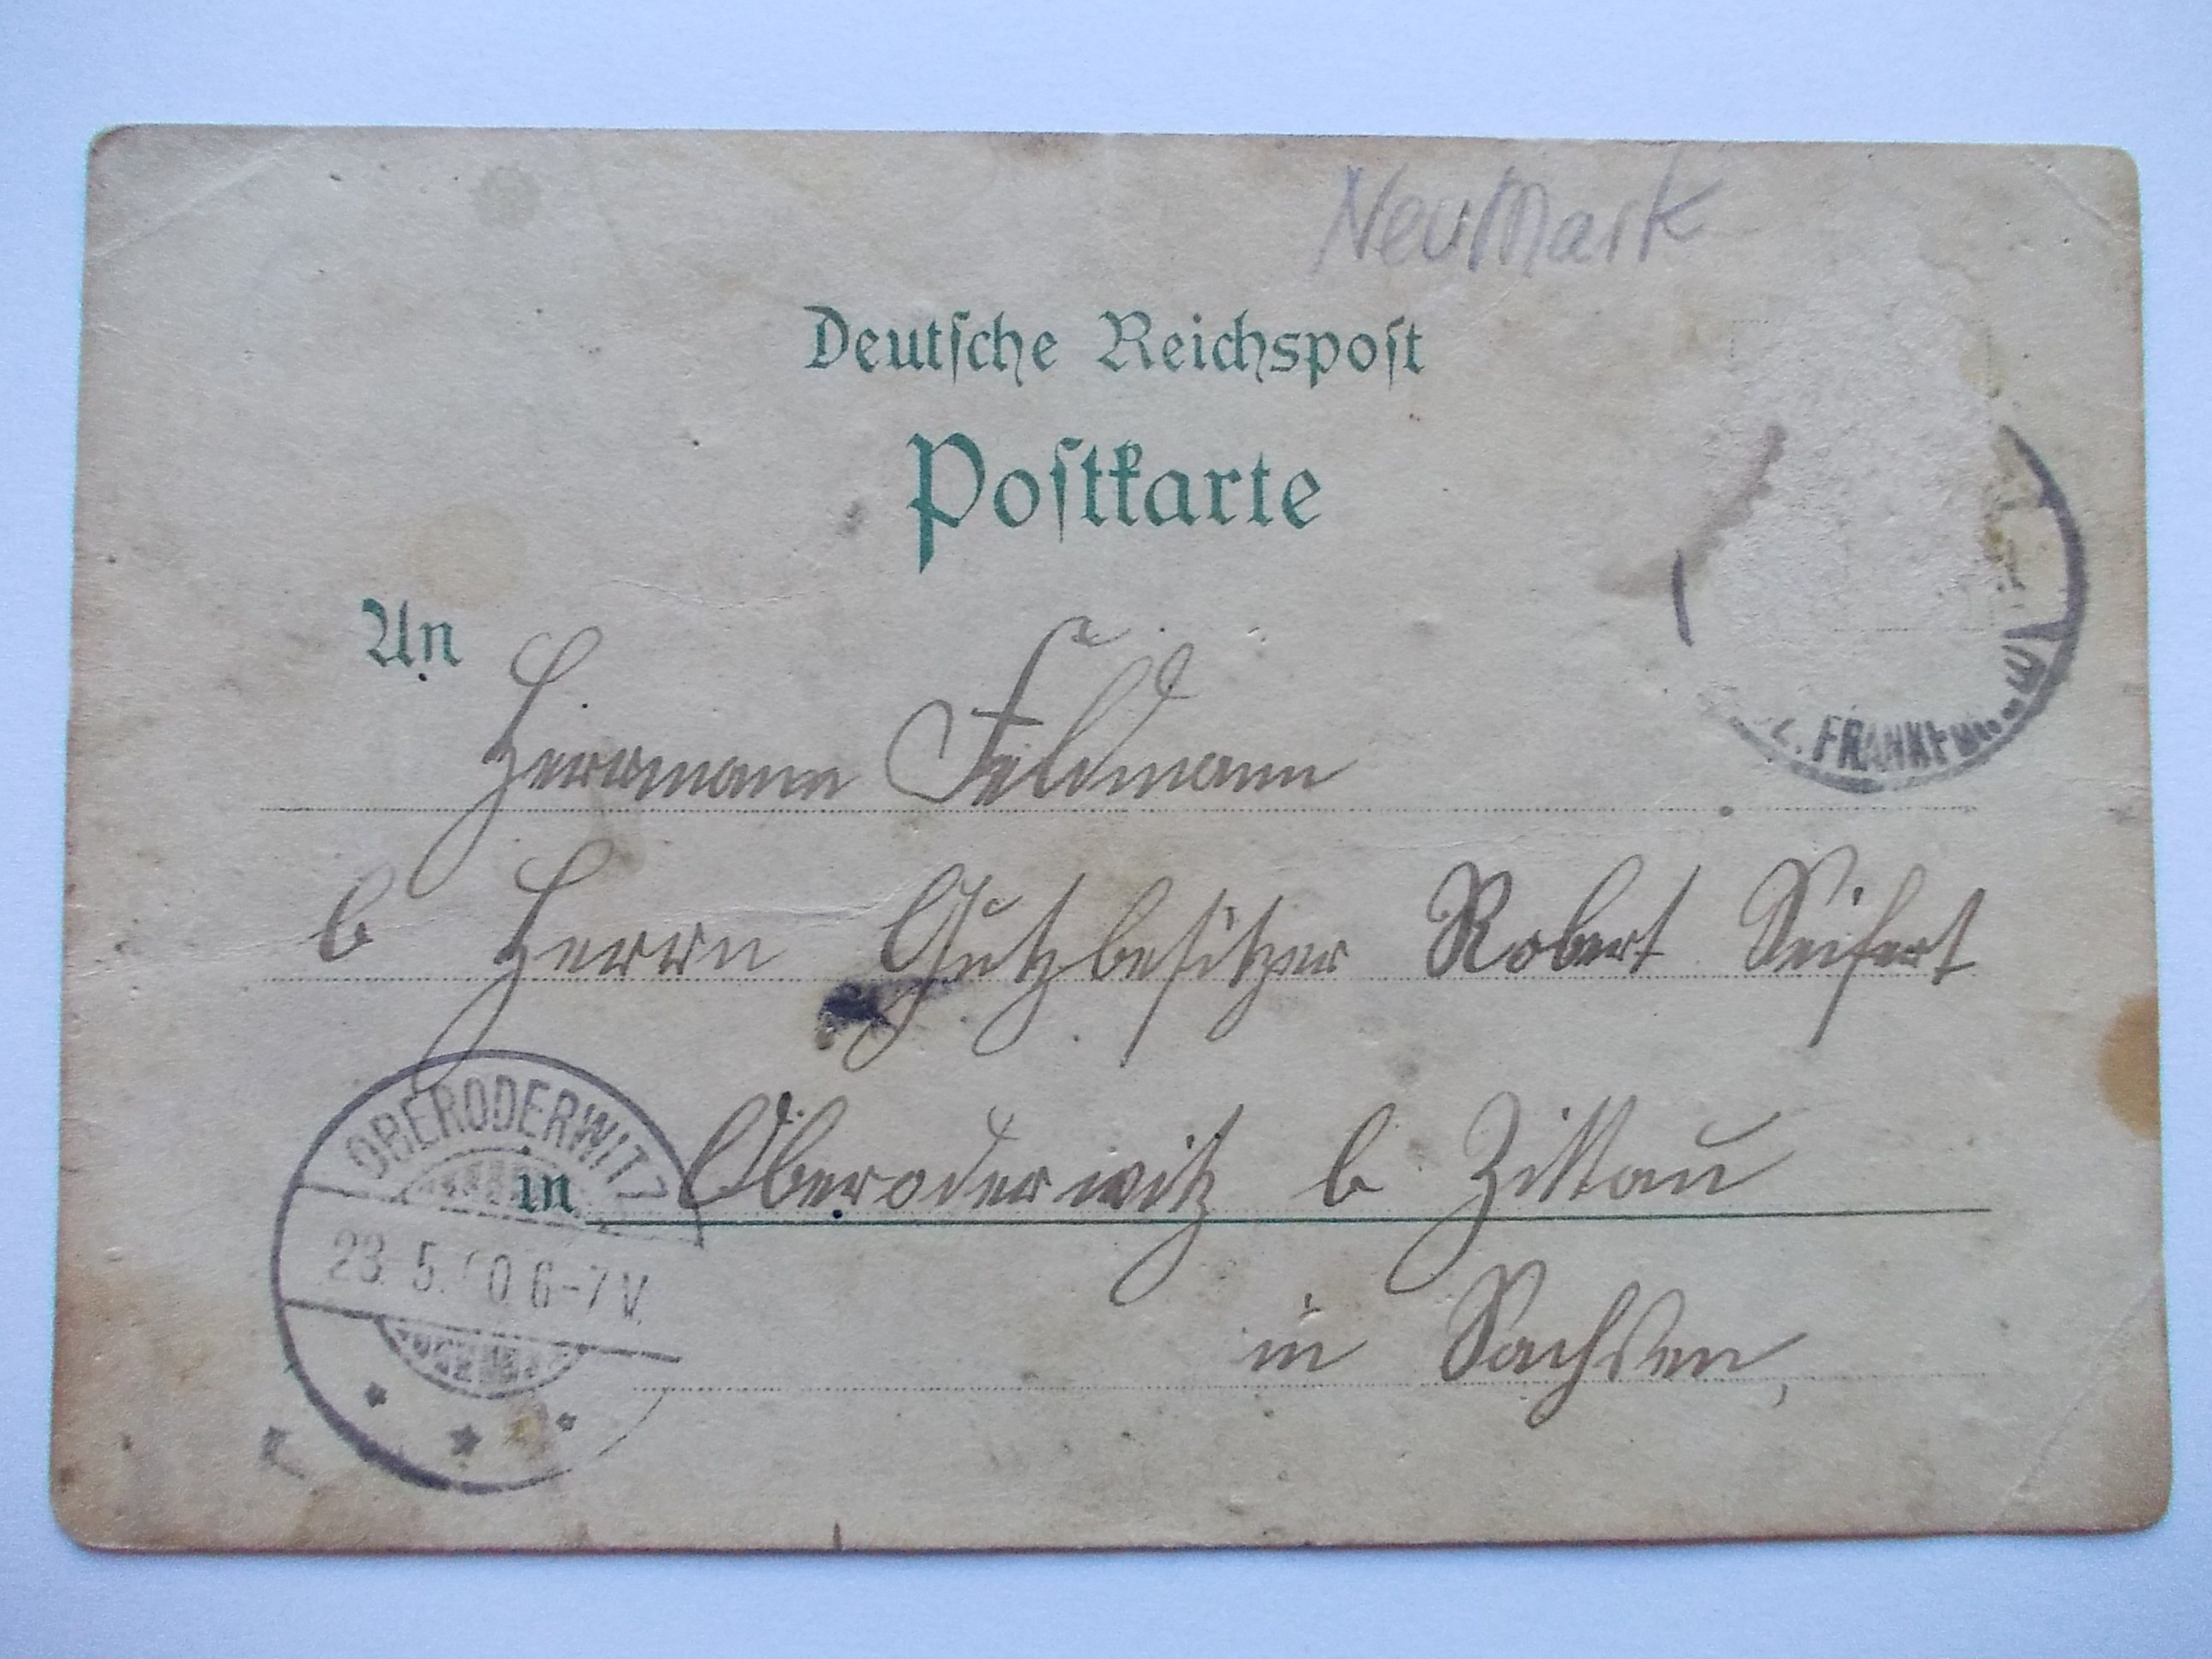 NeuMark
Deutsche Reichspost
Postkarte
An
Herrmann Feldmann
b Herrn Gutzbesitzer Robert Seifert
in Oberoderwitz b Zittau
in Sachsen,
OBERODERWITZ
23. 5. 0 6-7 V.